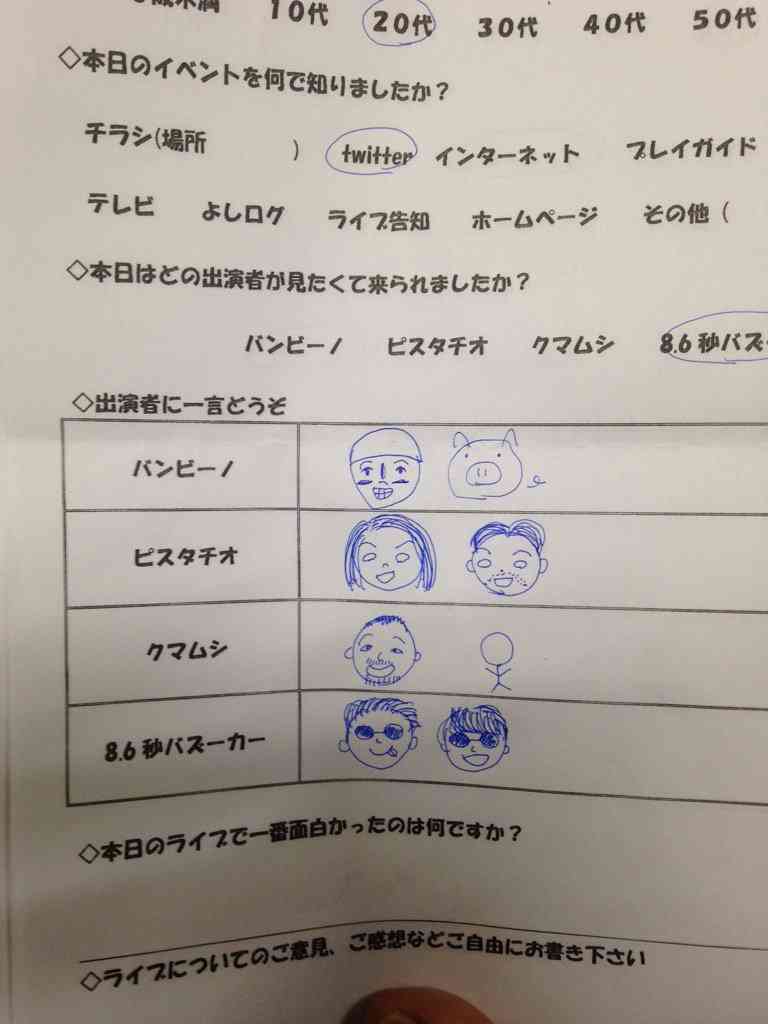 10代 20代 30代 40代 50代
◇本日のイベントを何で知りましたか？
チラシ(場所 ) twitter インターネット プレイガイド
テレビ よしログ ライブ告知 ホームページ その他（
◇本日はどの出演者が見たくて来られましたか？
バンビーノ ピスタチオ クマムシ 8.6秒バズー
◇出演者に一言どうぞ
バンビーノ
ピスタチオ
クマムシ
8.6秒バズーカー
◇本日のライブで一番面白かったのは何ですか？
◇ライブについてのご意見、ご感想などご自由にお書き下さい